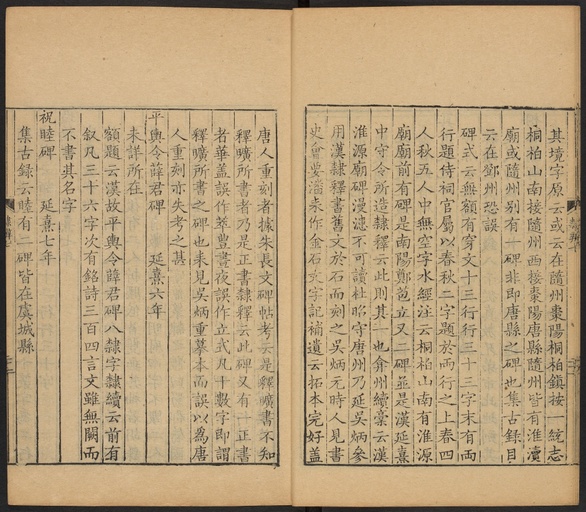 其境字原云或云在隨州棗陽桐柏鎮按　統志
桐柏山南接隨州西接棗陽唐縣隨州皆有淮瀆
廟或隨州别有一碑非即唐縣之碑也集古録目
云在鄧州恐誤
碑式云無額有穿文十三行行三十三字末有兩
行題侍祠官屬以春秋二字題於兩行之上春四
人秋五人中無空字水經注云桐柏山南有淮源
廟廟前有碑是南陽郭苞立又二碑並是漢延熹
中守令所造隸釋云此則其一也弇州續稾云漢
淮源廟碑漫漶不可讀杜昭守唐州乃延吳炳參
用漢隸釋書舊文於石而刻之吳炳元時人見書
史會要潘耒作金石文字記補遺云拓本完好蓋
唐人重刻者據朱長文碑帖考云是釋曠書不知
釋曠所書者乃是正書隸釋云此碑又有一正書
者華蓋誤作莁豊晝夜誤作立式凡十數字即謂
釋曠所書之碑也耒見吳炳重摹本而誤以爲唐
人重刻亦失考之甚
平輿令薛君碑　延熹六年
未詳所在
額題云漢故平輿令薛君碑八隸字隸續云前有
叙凡三十六字次有銘詩三百四言文雖無闕而
不書其名字
祝睦碑　延熹七年
集古録云睦有二碑皆在虞城縣